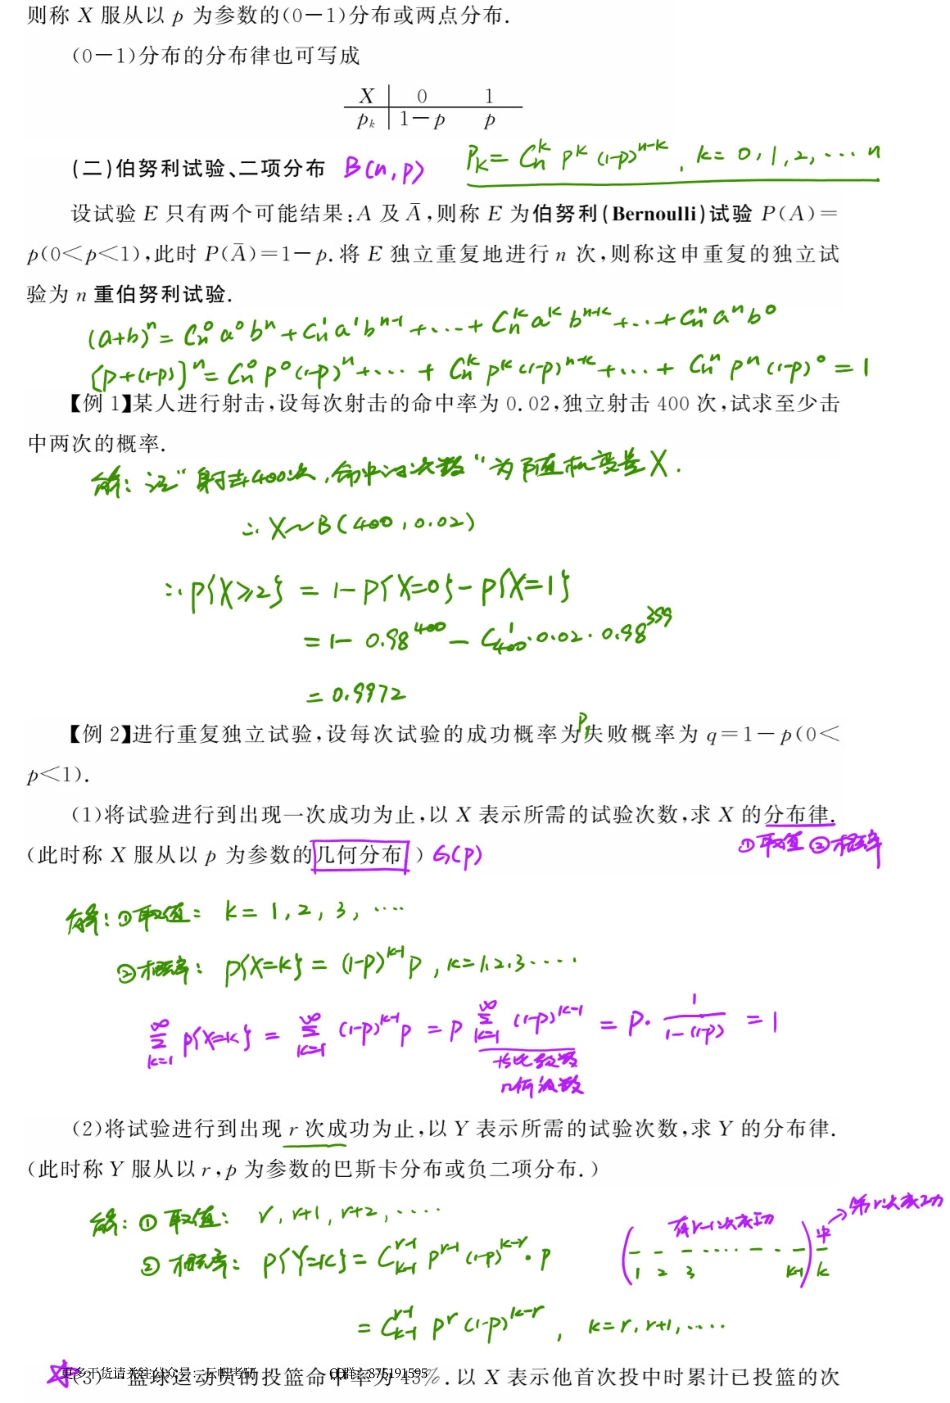 则称 X 服从以 p 为参数的(0—1)分布或两点分布.
(0—1)分布的分布律也可写成
X 0 1
pₖ 1−p p
(二)伯努利试验、二项分布 B(n,p) Pₖ= Cₙᵏ pᵏ (1-p)ⁿ⁻ᵏ , k= 0,1,2,⋯ n
设试验 E 只有两个可能结果:A 及 A̅,则称 E 为伯努利(Bernoulli)试验 P(A)=
p(0<p<1),此时 P(A̅)=1−p.将 E 独立重复地进行 n 次,则称这串重复的独立试
验为 n 重伯努利试验.
(a+b)ⁿ= Cₙ⁰ a⁰bⁿ + Cₙ¹ a¹bⁿ⁻¹ +⋯+ Cₙᵏ aᵏ bⁿ⁻ᵏ +⋯+ Cₙⁿ aⁿb⁰
[p+(1-p)]ⁿ= Cₙ⁰ p⁰(1-p)ⁿ+⋯ + Cₙᵏ pᵏ (1-p)ⁿ⁻ᵏ +⋯+ Cₙⁿ pⁿ (1-p)⁰ = 1
【例 1】某人进行射击,设每次射击的命中率为 0.02,独立射击 400 次,试求至少击
中两次的概率.
解: 记“射击400次,命中的次数”为随机变量X.
∴ X~B(400,0.02)
∴ P{X≥2} = 1-P{X=0}-P{X=1}
= 1- 0.98⁴⁰⁰ - C₄₀₀¹·0.02·0.98³⁹⁹
= 0.9972
【例 2】进行重复独立试验,设每次试验的成功概率为p,失败概率为 q=1−p(0<
p<1).
(1)将试验进行到出现一次成功为止,以 X 表示所需的试验次数,求 X 的分布律.
(此时称 X 服从以 p 为参数的几何分布) G(p) ①取值②概率
解:①取值: k= 1,2,3,⋯
②概率: P{X=k} = (1-p)ᵏ⁻¹p , k=1.2.3⋯
∑ₖ₌₁^∞ P{X=k} = ∑ₖ₌₁^∞ (1-p)ᵏ⁻¹p = p ∑ₖ₌₁^∞ (1-p)ᵏ⁻¹ = p· 1/(1-(1-p)) = 1
等比级数
几何级数
(2)将试验进行到出现 r 次成功为止,以 Y 表示所需的试验次数,求 Y 的分布律.
(此时称 Y 服从以 r,p 为参数的巴斯卡分布或负二项分布.)
解: ① 取值: r, r+1, r+2, ⋯ 有r-1次成功 中 →第r次成功
② 概率: P{Y=k} = Cₖ₋₁ʳ⁻¹ pʳ⁻¹ (1-p)ᵏ⁻ʳ · p 1 2 3 k-1 k
= Cₖ₋₁ʳ⁻¹ pʳ (1-p)ᵏ⁻ʳ , k=r, r+1, ⋯
(3)一篮球运动员的投篮命中率为 45%.以 X 表示他首次投中时累计已投篮的次